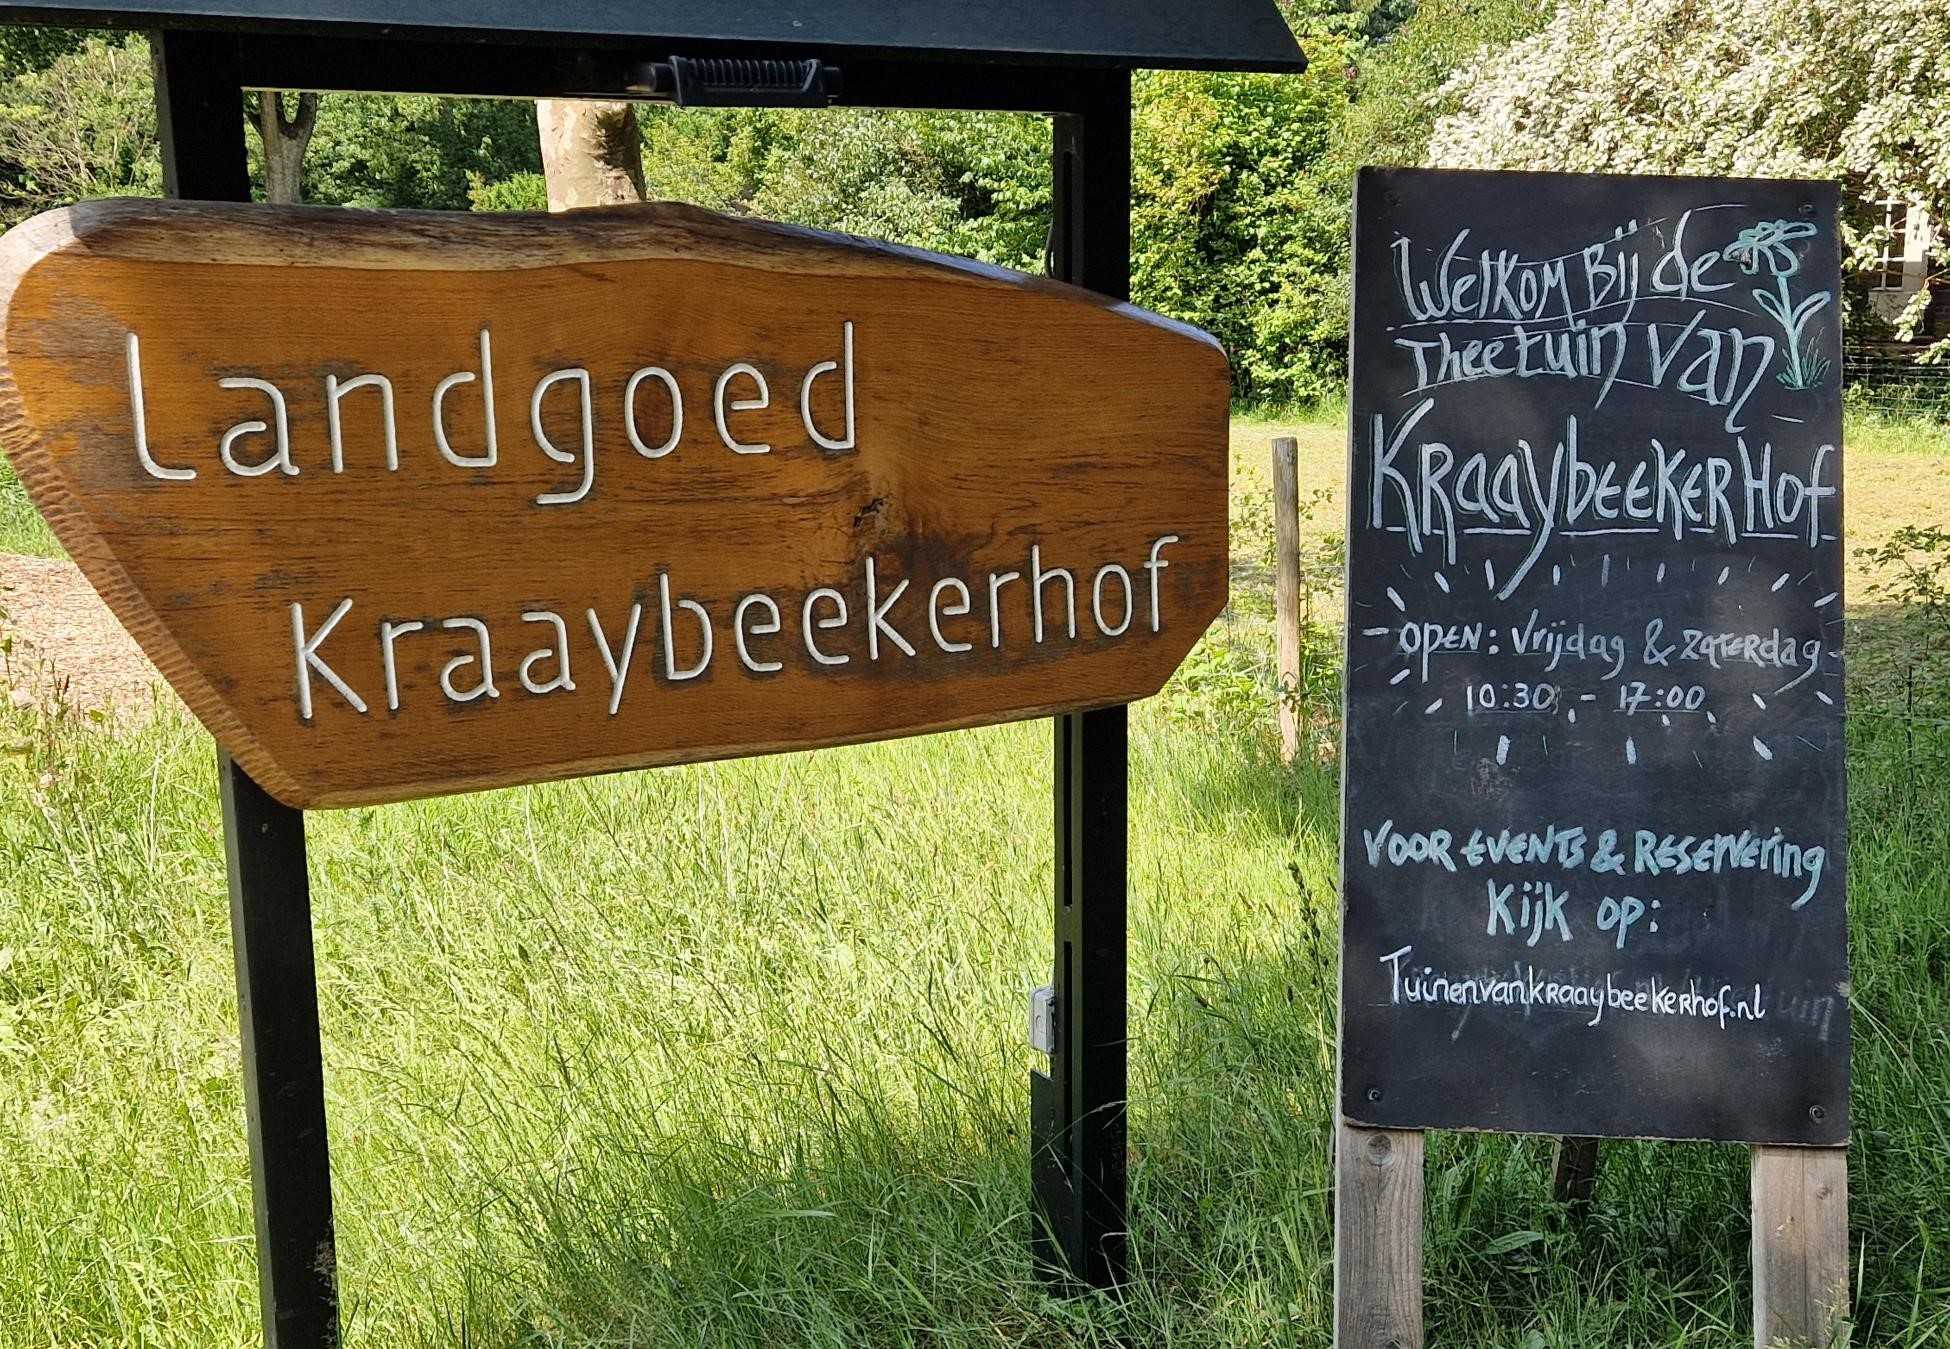 Landgoed
Kraaybeekerhof
Welkom Bij de
Theetuin van
KraaybeekerHof
OPEN: Vrijdag & zaterdag
10:30 - 17:00
VOOR EVENTS & RESERVering
Kijk op:
Tuinenvankraaybeekerhof.nl